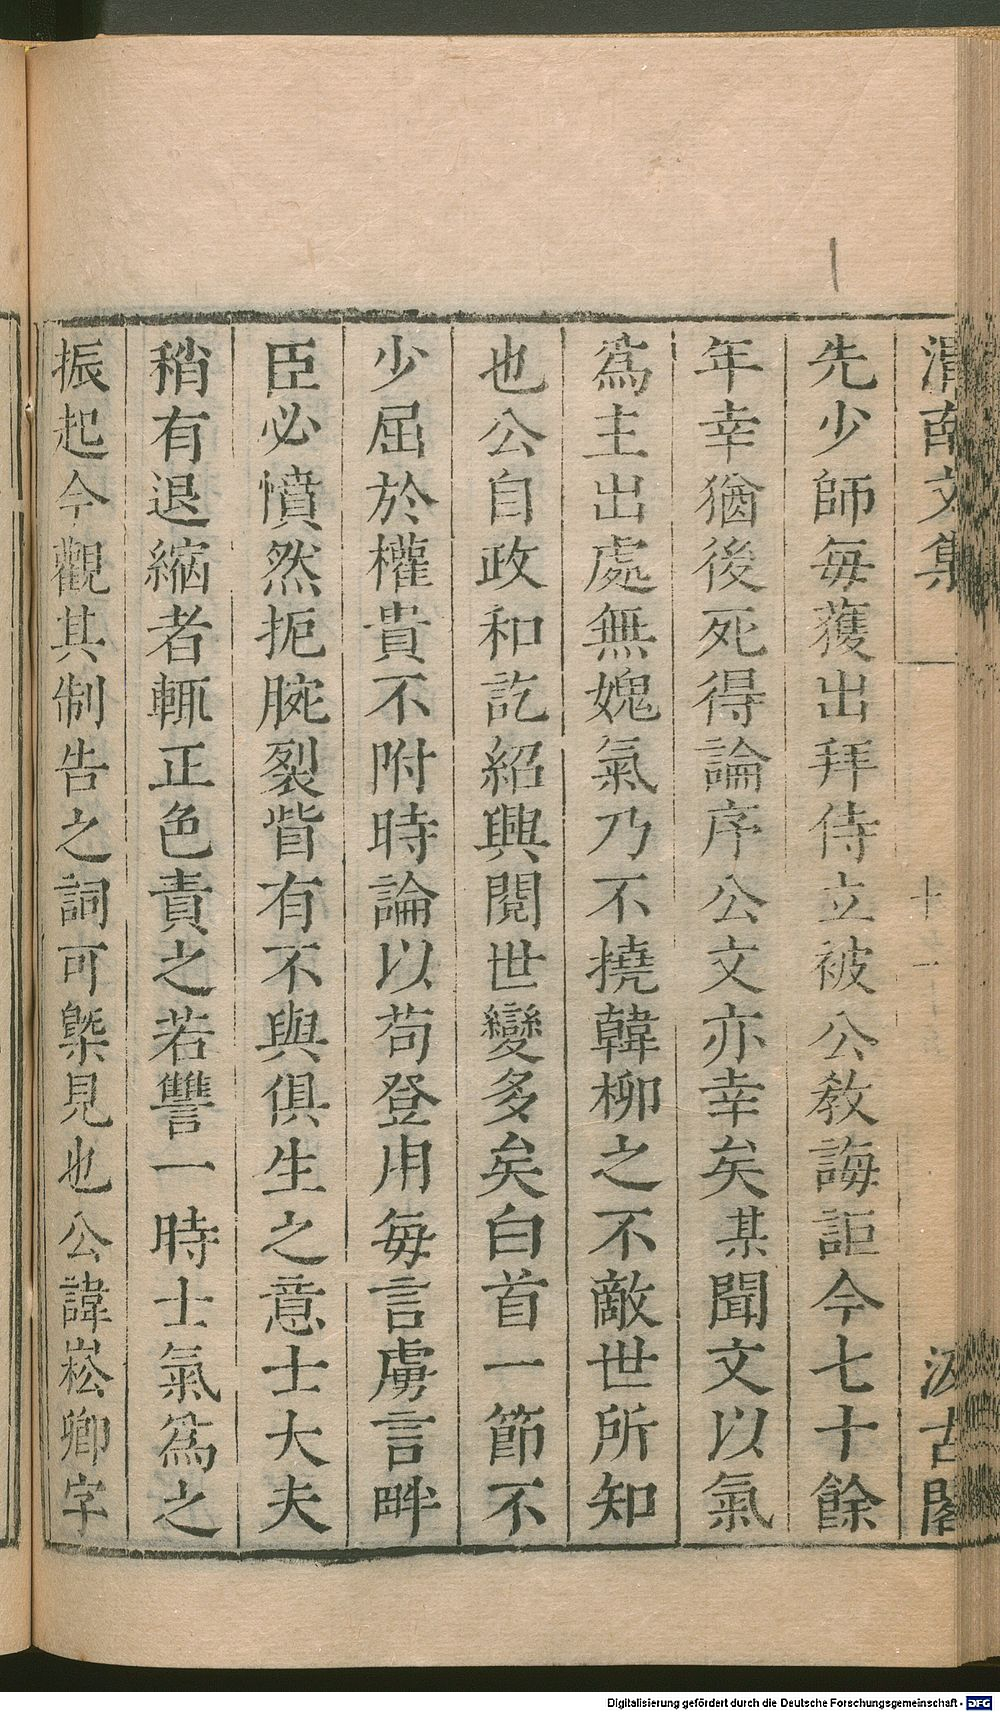 渭南文集 十一 汲古閣
先少師每獲出拜侍立被公教誨詎今七十餘
年幸猶後死得論序公文亦幸矣某聞文以氣
爲主出處無媿氣乃不撓韓柳之不敵世所知
也公自政和訖紹興閱世變多矣白首一節不
少屈於權貴不附時論以苟登用每言虜言畔
臣必憤然扼腕裂眥有不與俱生之意士大夫
稍有退縮者輒正色責之若讐一時士氣爲之
振起今觀其制告之詞可槩見也公諱崧卿字
Digitalisierung gefördert durch die Deutsche Forschungsgemeinschaft - DFG